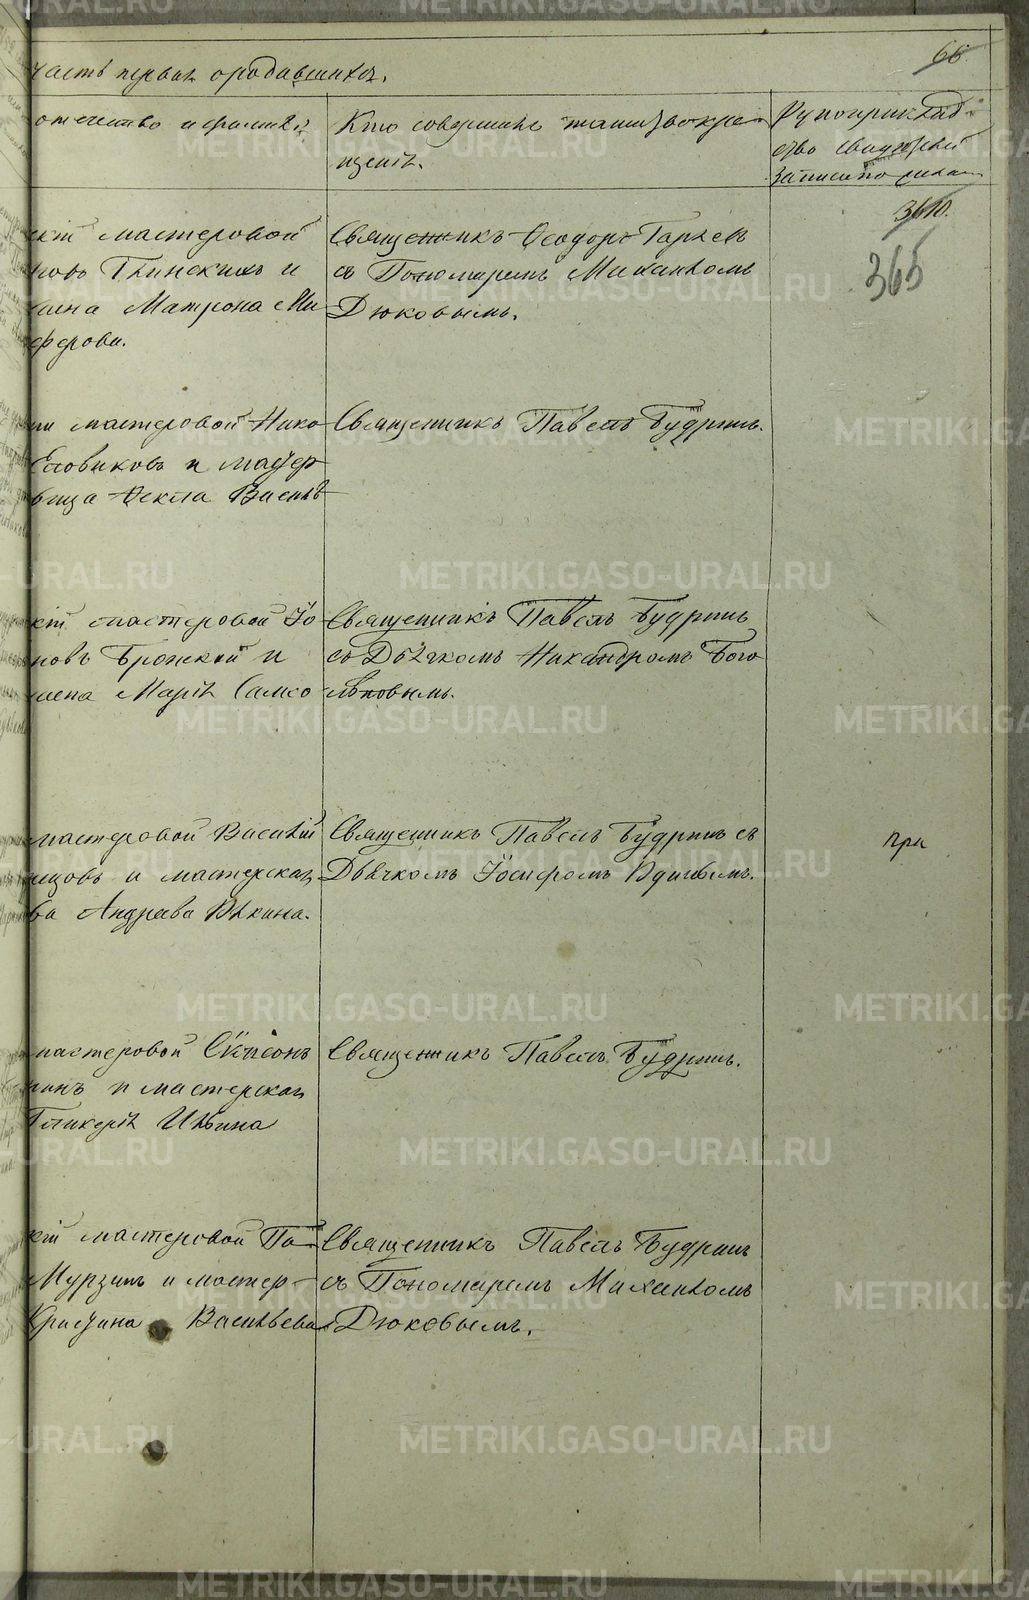 часть первая о родившихся.
66.
отчество и фамилія
Кто совершалъ таинство кре-
щенія.
Рукоприклад-
ство свидетелей
записи по жела-
3610.
365
скій мастеровой
новъ Глинскихъ и
шена Матрона Ни
ферова.
Священникъ Ѳеодоръ Гаряевъ
съ Пономаремъ Михаиломъ
Дюковымъ.
мастеровой Нико
Еловиковъ и мастер
вица Ѳекла Василь
Священникъ Павелъ Будринъ.
кій мастеровой Іо
новъ Бронскій и
шена Марія Самсо
Священникъ Павелъ Будринъ
съ Дьячкомъ Никандромъ Бого
мастеровой Василій
ецовъ и мастерская
ва Андреева
Священникъ Павелъ Будринъ съ
Дьячкомъ Іосифомъ Удинцевымъ.
при
мастеровой Симеонъ
инъ и мастерская
Гликерія Ильина
Священникъ Павелъ Будринъ.
кій мастеровой Па
Мурзинъ и мастер-
Кристина Васильева
Священникъ Павелъ Будринъ
съ Пономаремъ Михаиломъ
Дюковымъ.
METRIKI.GASO-URAL.RU